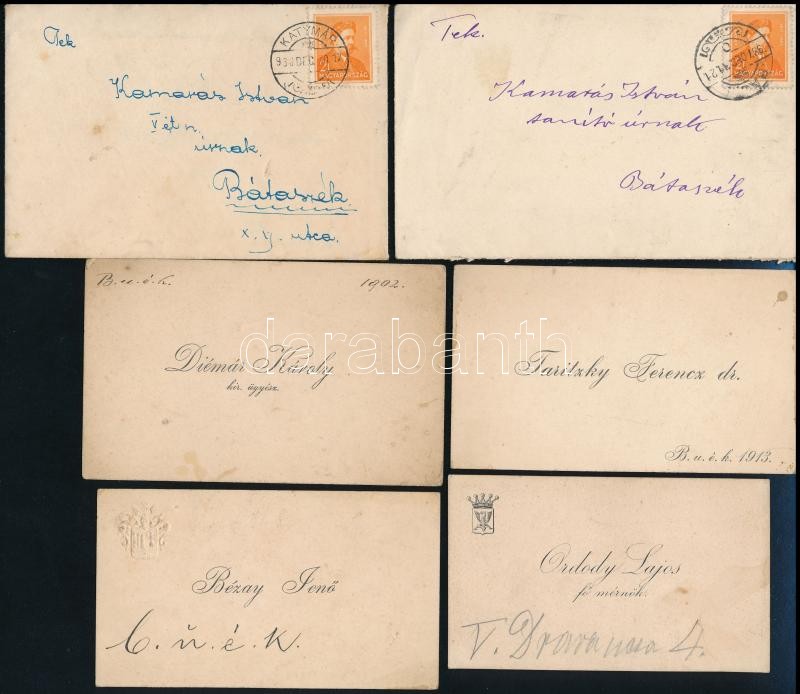 Tek
KATYMÁR
MAGYARORSZÁG
Kamarás István
úrnak.
Bátaszék
x. y. utca.
Tek.
MAGYARORSZÁG
Kamarás István
tanító úrnak
Bátaszék
B. u. é. k. 1902.
Diémár Károly
kir. ügyész.
darabanth
Taritzky Ferencz dr.
B. u. é. k. 1913.
Bézay Jenő
b. ú. é. k.
Ordody Lajos
fő mérnök.
V. 4.